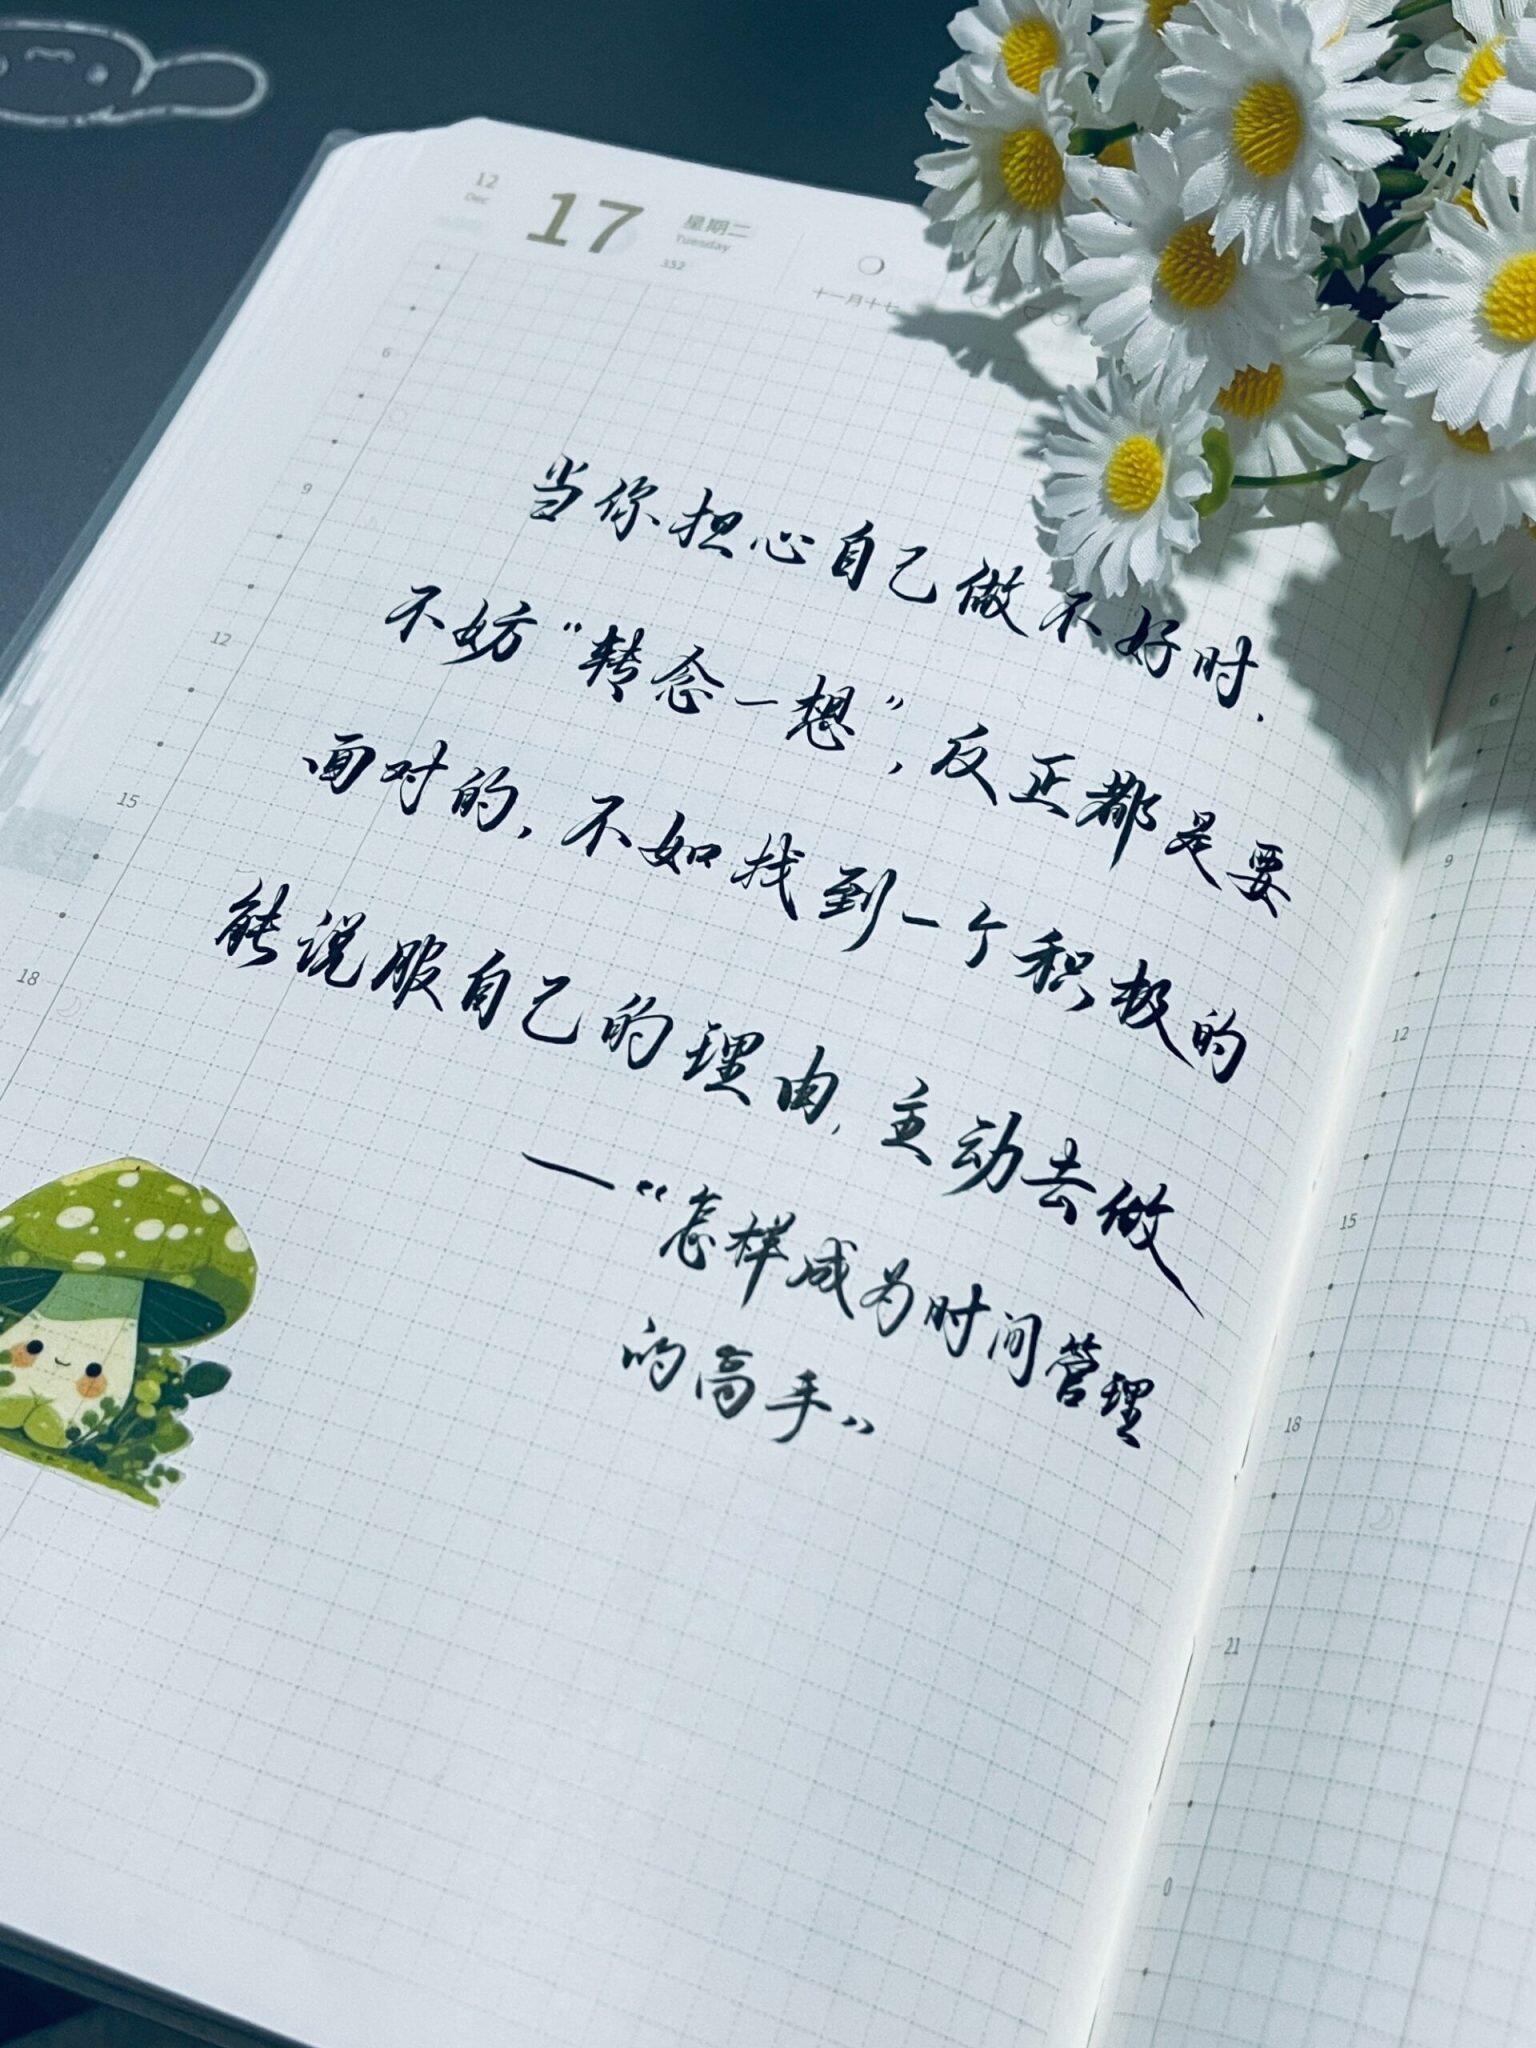 12
Dec
17
星期二
Tuesday
352
十一月十七
6
9
12
15
18
当你担心自己做不好时,
不妨“转念一想”,反正都是要
面对的,不如找到一个积极的
能说服自己的理由,主动去做
—“怎样成为时间管理
的高手”
6
9
12
15
18
21
0